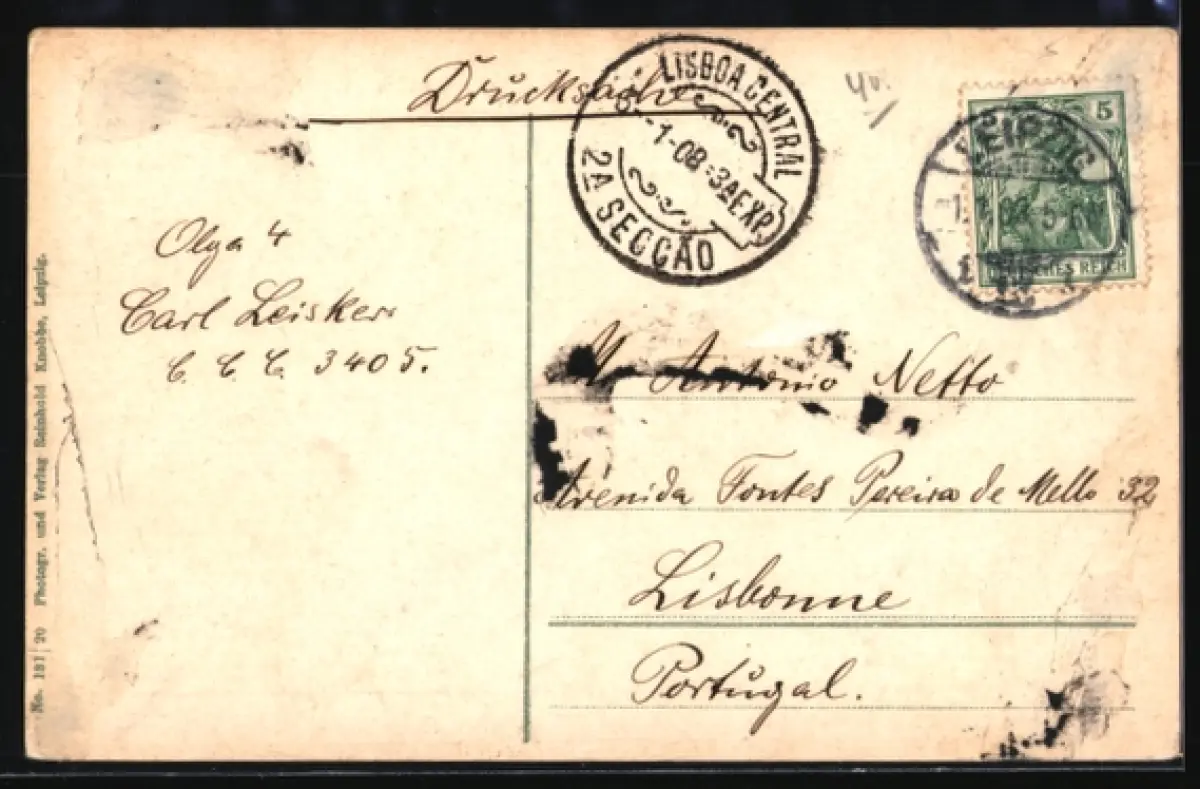 Drucksache
LISBOA CENTRAL
-1-08-3A EXP.
2A SECÇÃO
40.
5
LEIPZIG
DEUTSCHES REICH
Olga 4
Carl Leisker
C. C. C. 3405.
M Antonio Netto
Avenida Fontes Pereira de Mello 32
Lisbonne
Portugal.
No. 181/20 Photogr. und Verlag Reinhold Knobbe, Leipzig.